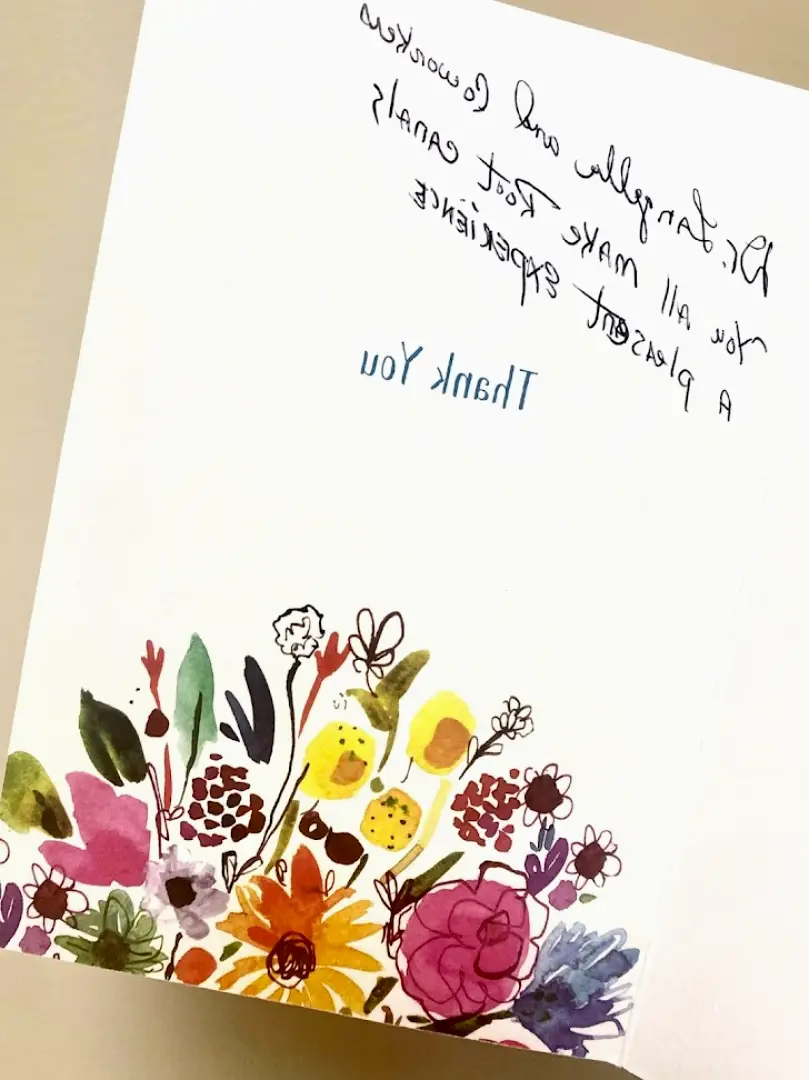 Dr. Langella and Coworkers
You All make Root canals
A pleasent EXPERIENCE
Thank You